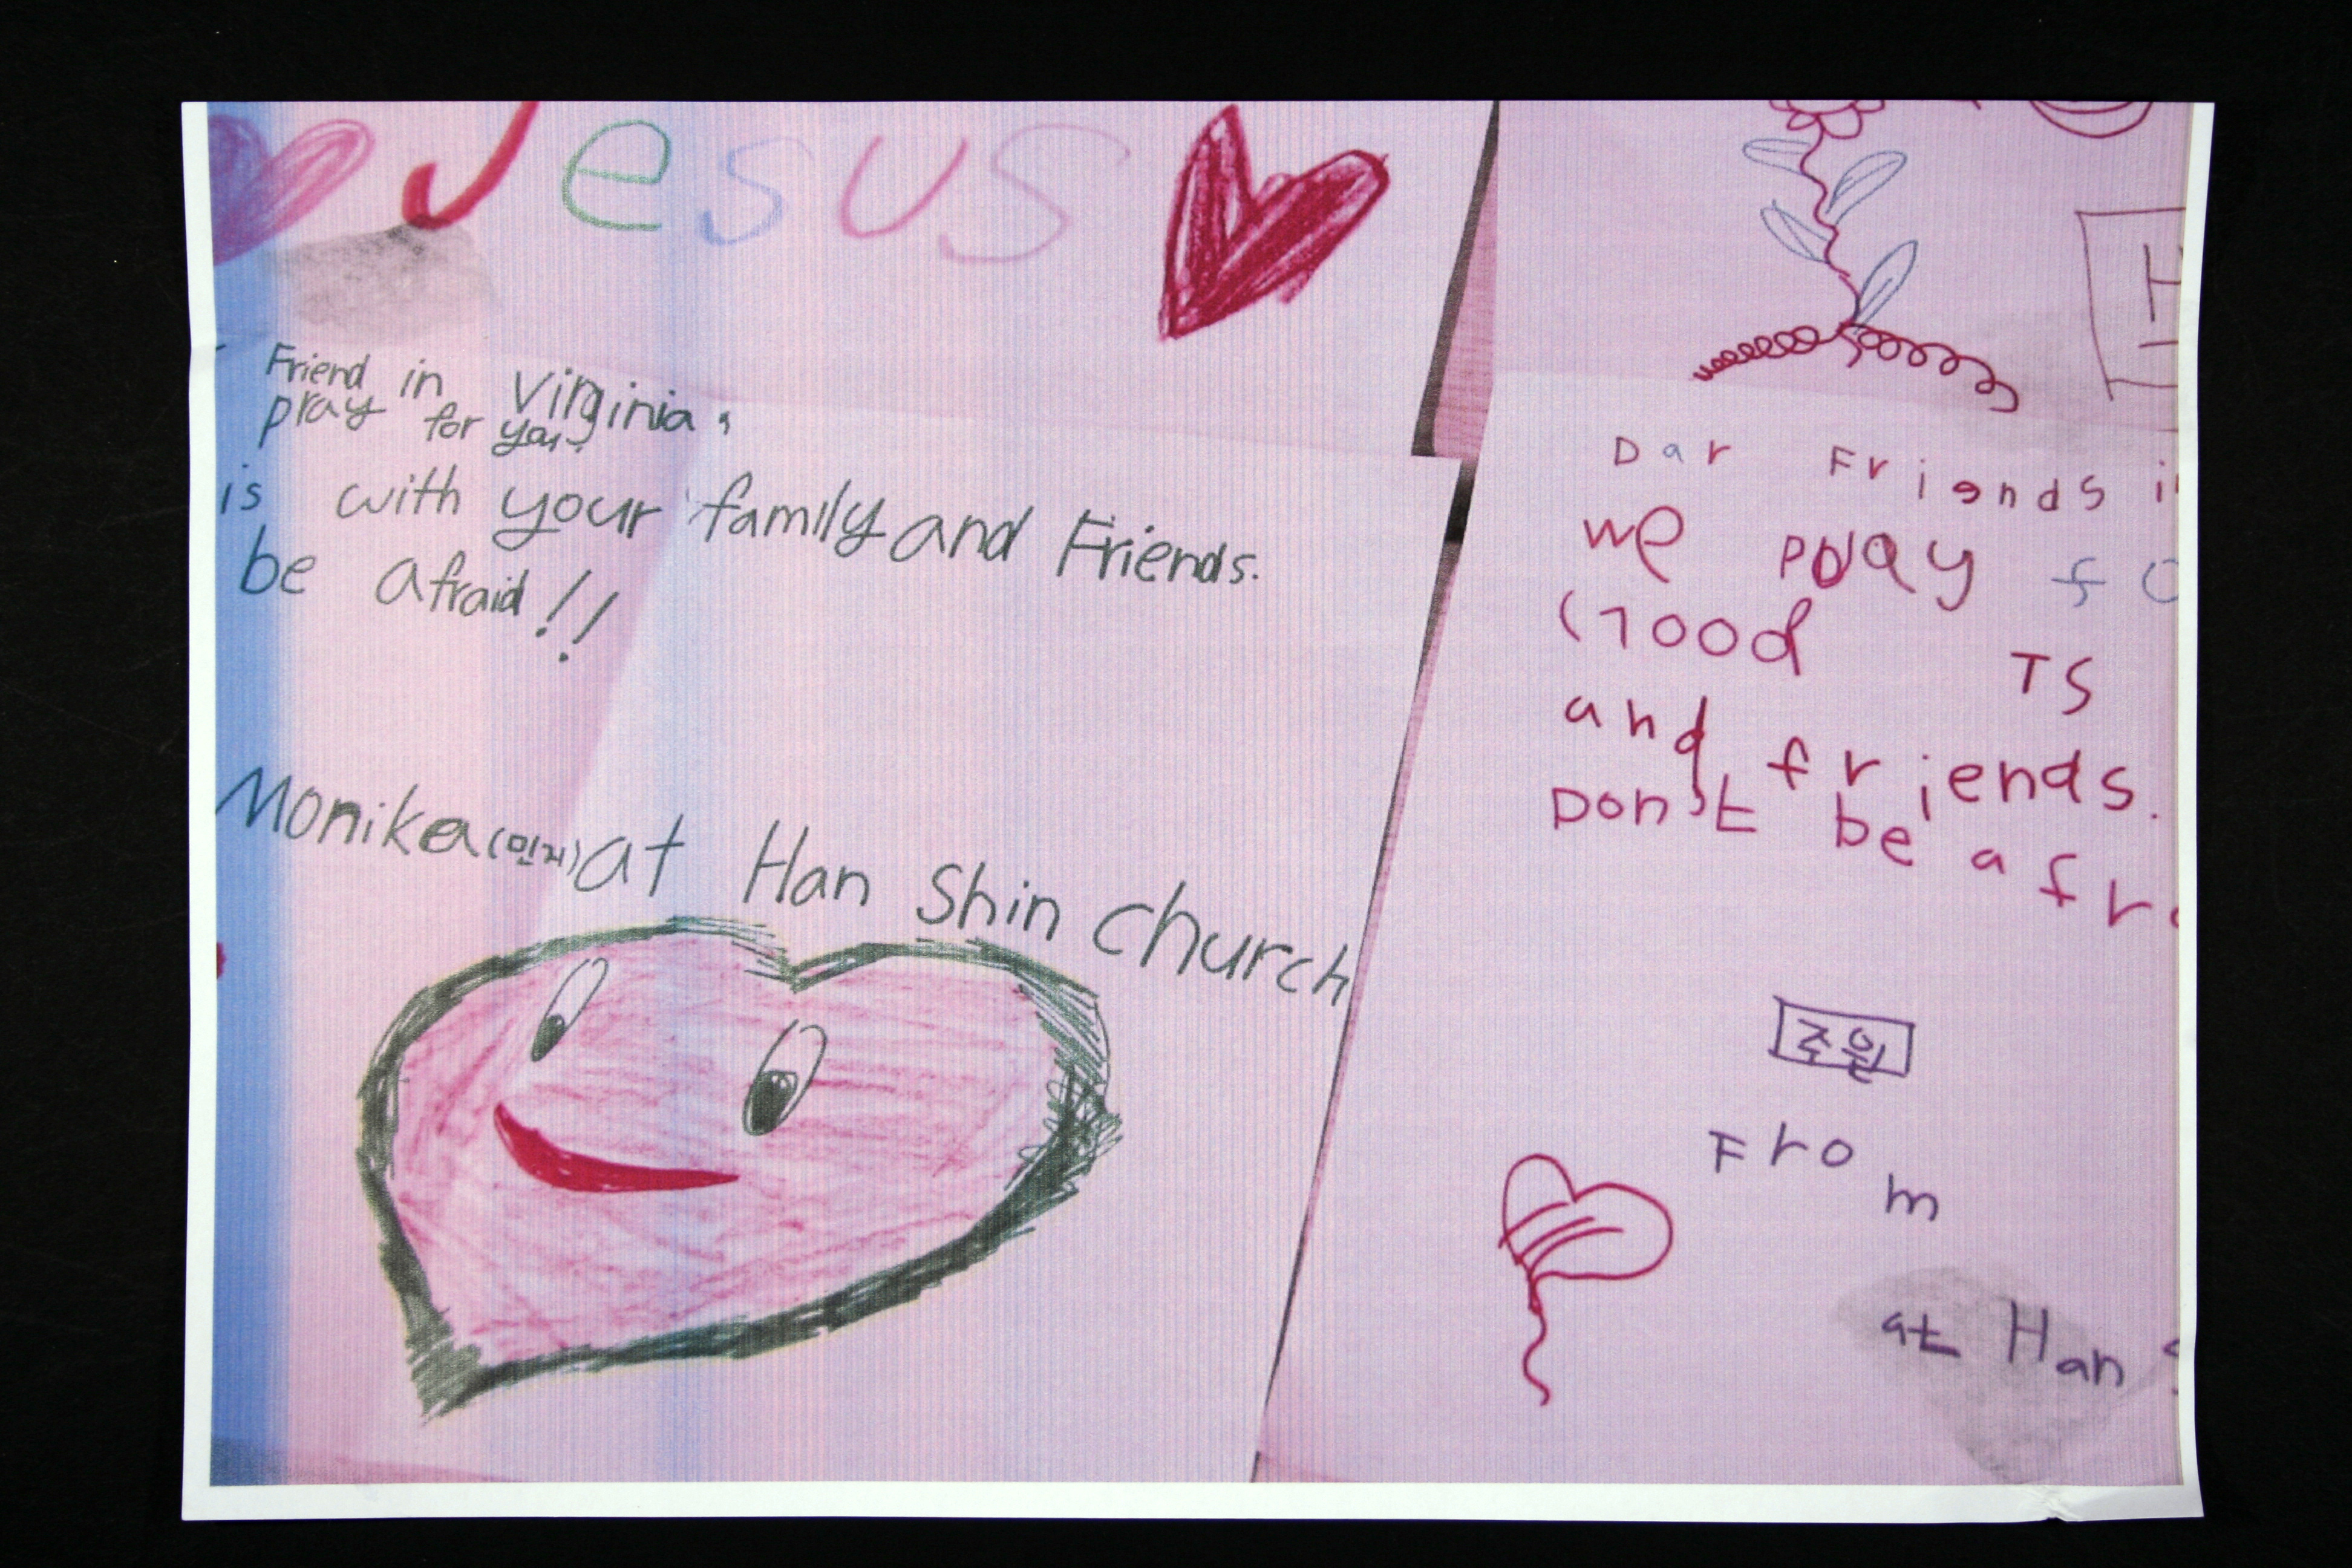 Jesus
Friend in Virginia,
pray for you.
is with your family and Friends.
be afraid!!
Monika(민지)at Han Shin church
H
Dar Friends i
we pray fo
Good IS
and friends.
Don't be afr
조원
From
at Han S